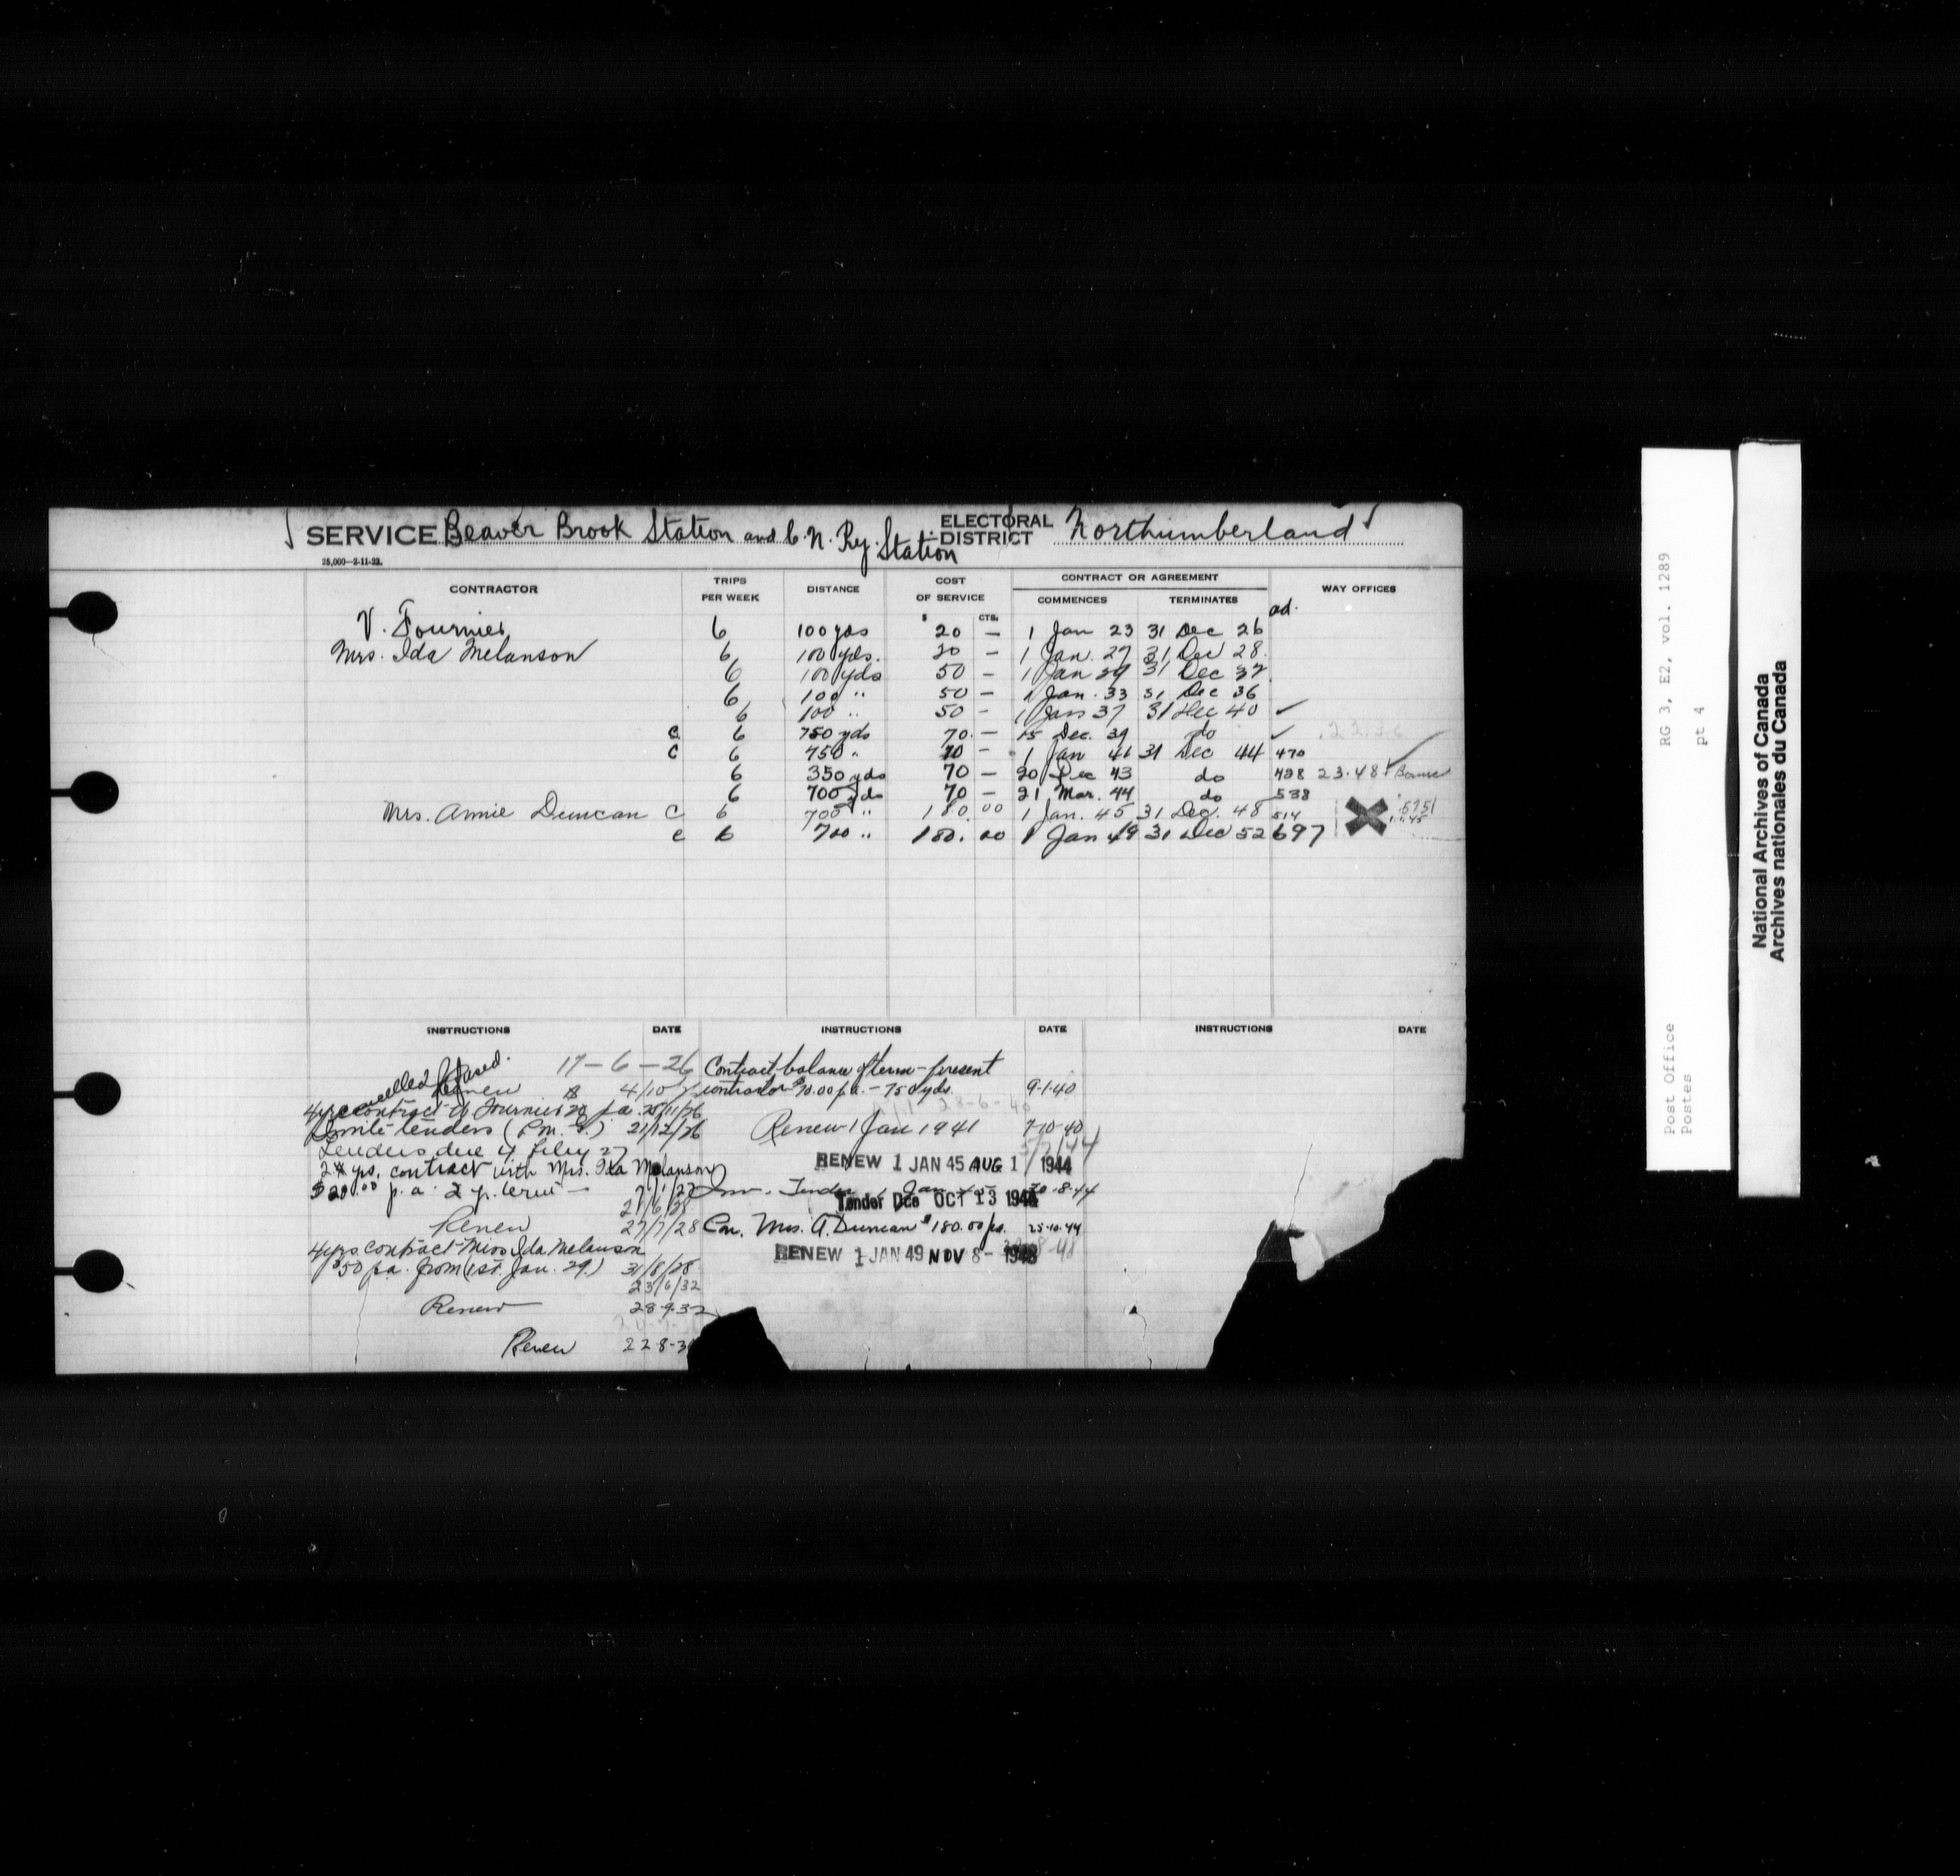 SERVICE Beaver Brook Station and C. N. Ry. Station ELECTORAL DISTRICT Northumberland
25,000—2-11-22.
CONTRACTOR TRIPS PER WEEK DISTANCE COST OF SERVICE CONTRACT OR AGREEMENT WAY OFFICES
$ CTS. COMMENCES TERMINATES
ad.
V. Fournier 6 100 yds 20 — 1 Jan 23 31 Dec 26
Mrs. Ida Melanson 6 100 yds. 20 — 1 Jan. 27 31 Dec 28.
6 100 yds 50 — 1 Jan 29 31 Dec 32.
6 100 " 50 — 1 Jan. 33 31 Dec 36
6 100 " 50 — 1 Jan 37 31 Dec 40 ✓
c 6 750 yds 70. — 15 Dec. 39 do ✓
c 6 750 " 70 — 1 Jan 41 31 Dec 44 470
6 350 yds 70 — 20 Dec 43 do 428 23.48
6 700 yds 70 — 21 Mar. 44 do 538
Mrs. Annie Duncan c 6 700 " 180. 00 1 Jan. 45 31 Dec. 48 514
c 6 700 " 180. 00 1 Jan 49 31 Dec 52 697
INSTRUCTIONS DATE INSTRUCTIONS DATE INSTRUCTIONS DATE
17-6-26
Renew 4/10
4 yrs contract V. Fournier 20 p.a. 25/11/26
Invite tenders (P.M. G.) 21/12/26
Tenders due 4 Feby 27
2 yrs. contract with Mrs. Ida Melanson
$20.00 p. a. 2 y. term —
21/6/28
Renew 27/7/28
4 yrs. contract Miss Ida Melanson
$50 p.a. from (1st. Jan. 29.) 31/8/28
23/6/32
Renew 28-9-32
Renew 22-8-3
Contract balance of term - present
contractor $70.00 p.a. — 750 yds. 9-1-40
28-6-40
Renew 1 Jan 1941 7-10-40
5/7/44
RENEW 1 JAN 45 AUG 1 1944
Inv. Tenders 1 Jan 45 30-8-44
Tender Due OCT 13 1944
Con. Mrs. A. Duncan $180.00 p.a. 25-10-44
RENEW 1 JAN 49 NOV 8 - 1948
RG 3, E2, vol. 1289
pt 4
Post Office
Postes
National Archives of Canada
Archives nationales du Canada